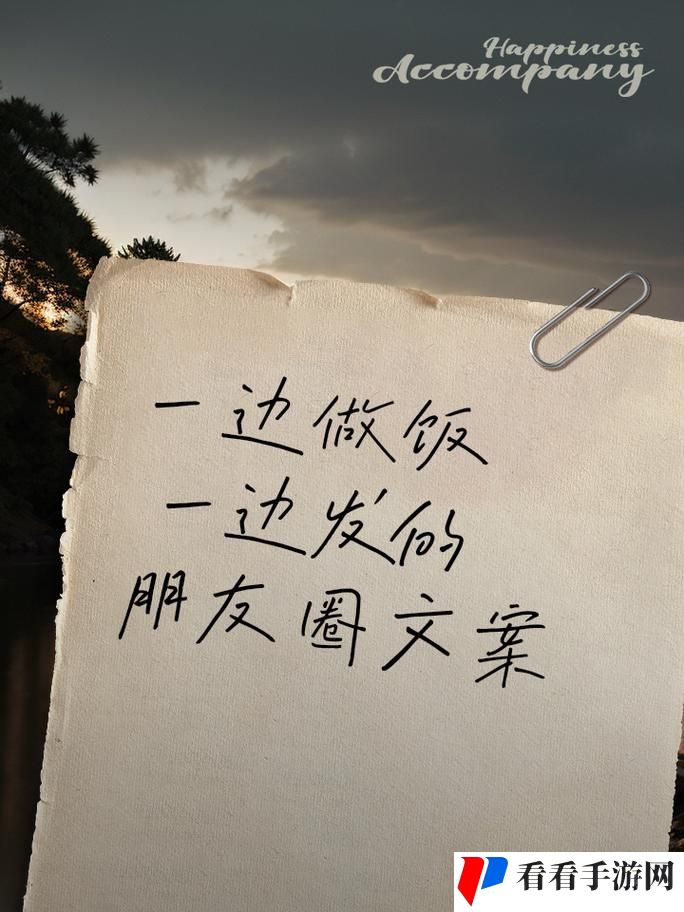 Happiness
Accompany
一边做饭
一边发的
朋友圈文案
看看手游网